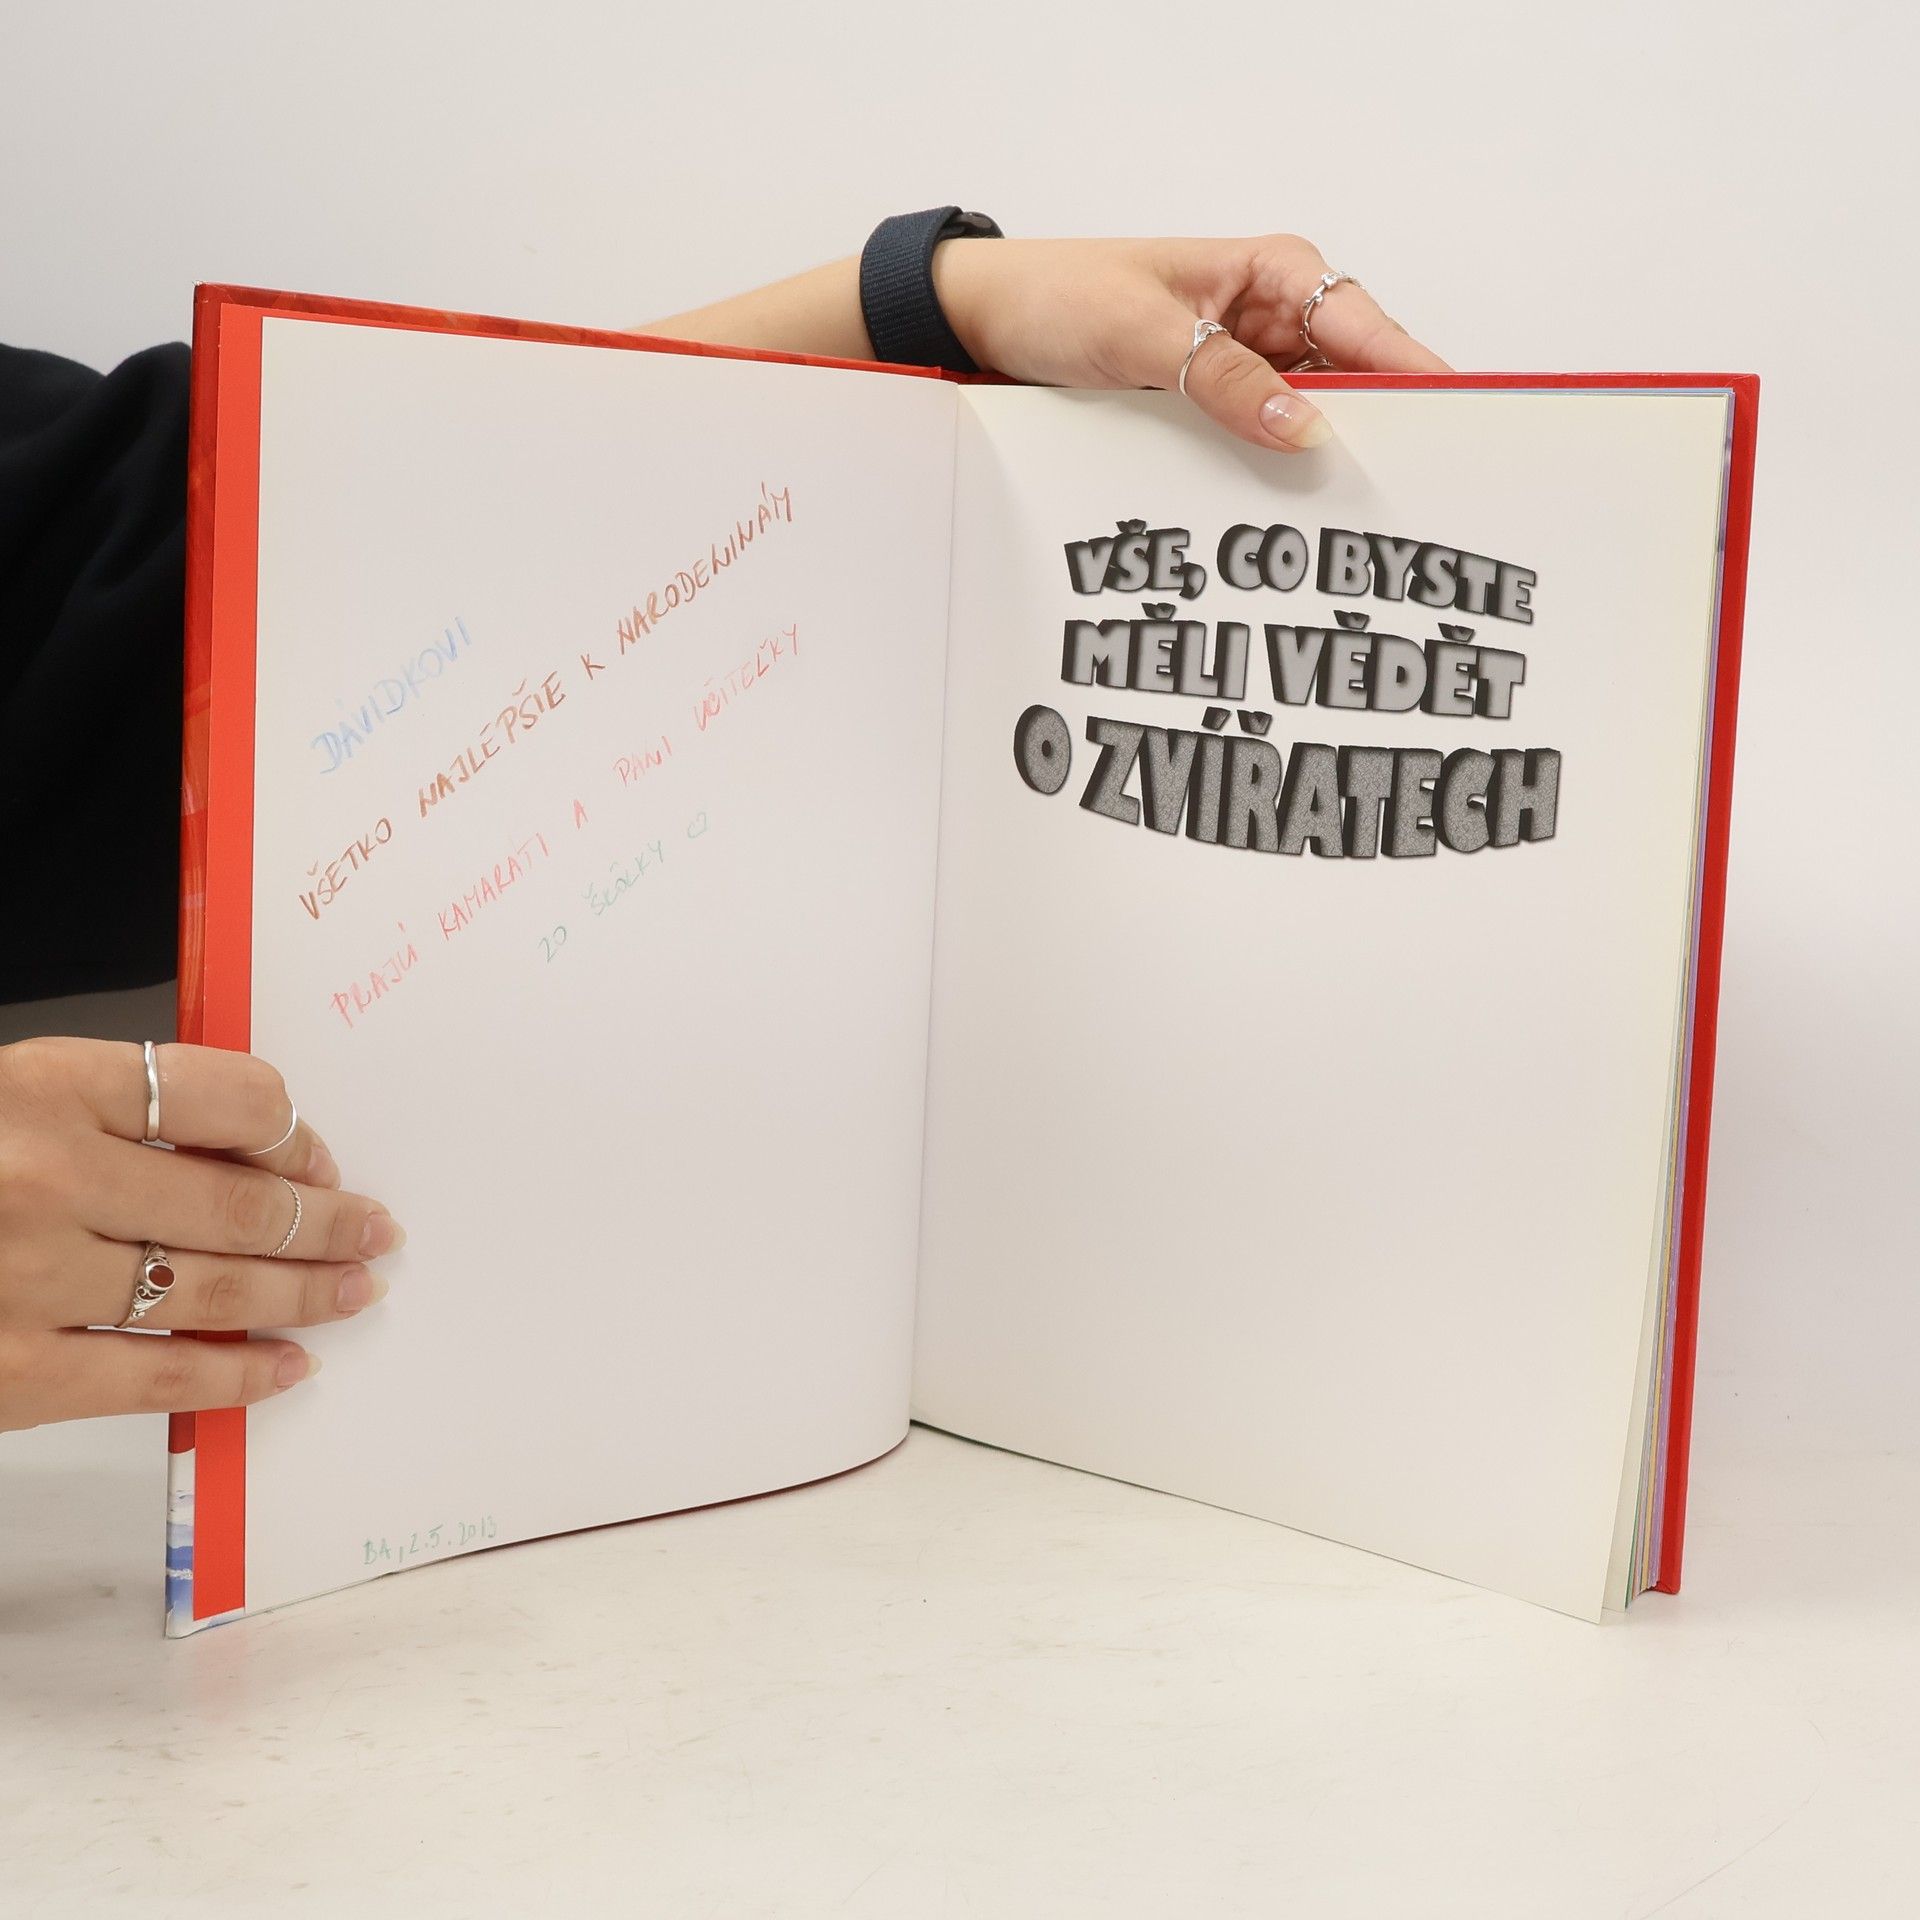 DÁVIDKOVI
VŠETKO NAJLEPŠIE K NARODENINÁM
PRAJÚ KAMARÁTI A PANI UČITEĽKY
ZO ŠKÔLKY ♡
BA, 2.5.2013
VŠE, CO BYSTE
MĚLI VĚDĚT
O ZVÍŘATECH